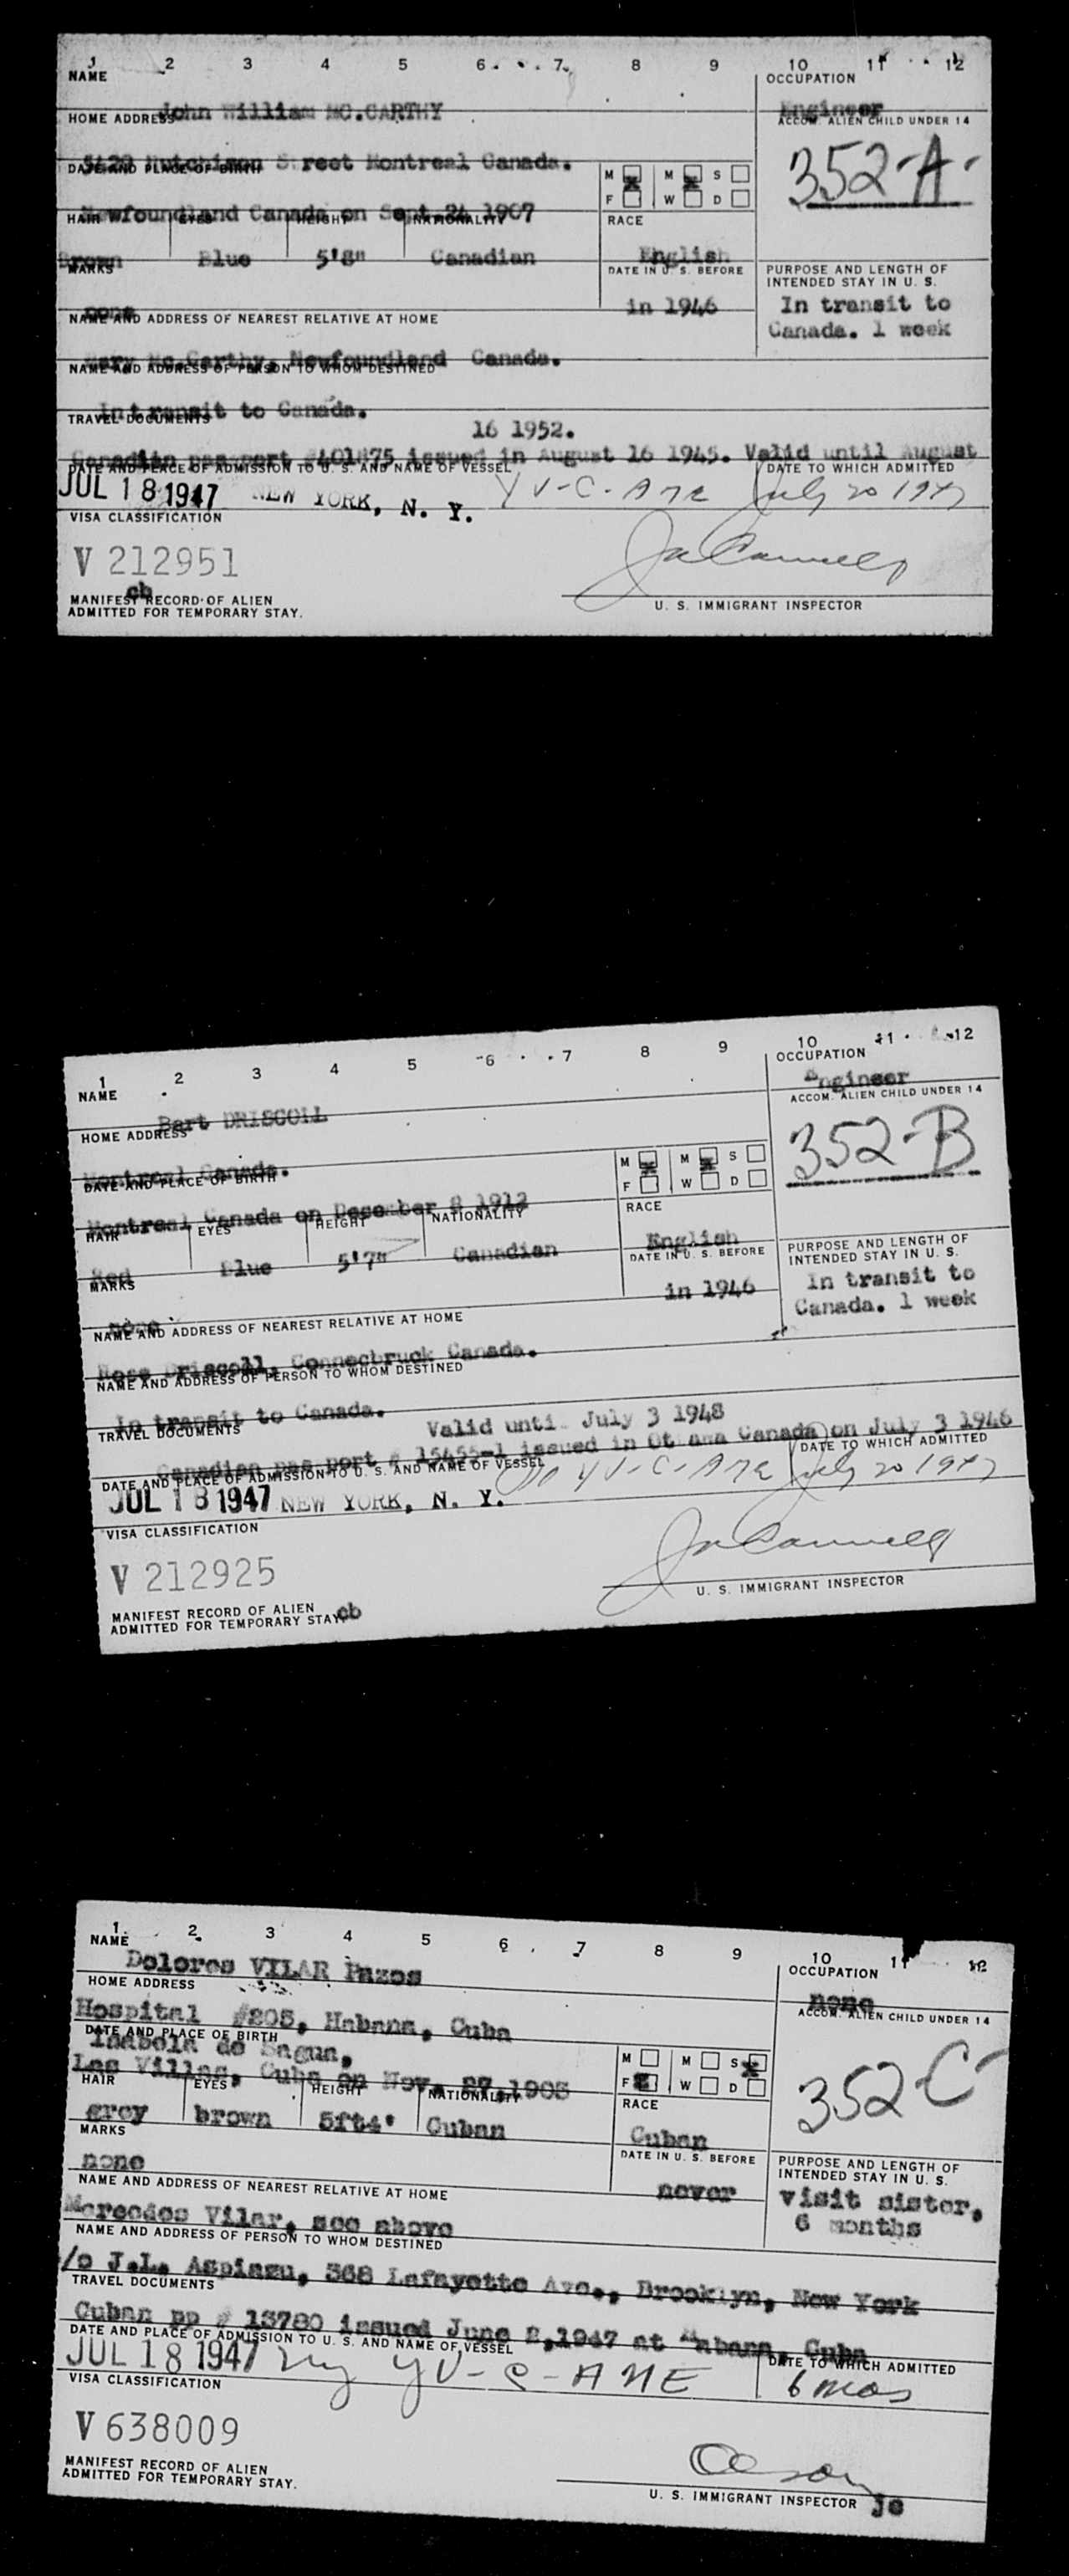 1 2 3 4 5 6 7 8 9 10 11 12
NAME
OCCUPATION
John William MC.CARTHY
Engineer
HOME ADDRESS
ACCOM. ALIEN CHILD UNDER 14
5429 Hutchison Street Montreal Canada.
352-A-
DATE AND PLACE OF BIRTH
M M S
F W D
Newfoundland Canada on Sept 24 1907
HAIR EYES HEIGHT NATIONALITY RACE
Brown Blue 5'8" Canadian English
MARKS
DATE IN U. S. BEFORE
PURPOSE AND LENGTH OF
INTENDED STAY IN U. S.
none in 1946 In transit to
Canada. 1 week
NAME AND ADDRESS OF NEAREST RELATIVE AT HOME
Mary Mc.Carthy, Newfoundland Canada.
NAME AND ADDRESS OF PERSON TO WHOM DESTINED
In transit to Canada.
TRAVEL DOCUMENTS
16 1952.
Canadian passport #401875 issued in August 16 1945. Valid until August
DATE AND PLACE OF ADMISSION TO U. S. AND NAME OF VESSEL
DATE TO WHICH ADMITTED
JUL 18 1947 NEW YORK, N. Y. YV-C-AME July 20 1947
VISA CLASSIFICATION
V 212951
cb
MANIFEST RECORD OF ALIEN
ADMITTED FOR TEMPORARY STAY.
U. S. IMMIGRANT INSPECTOR
1 2 3 4 5 6 7 8 9 10 11 12
NAME
OCCUPATION
Bart DRISCOLL
Engineer
HOME ADDRESS
ACCOM. ALIEN CHILD UNDER 14
Montreal Canada.
352-B
DATE AND PLACE OF BIRTH
M M S
F W D
Montreal Canada on December 8 1912
HAIR EYES HEIGHT NATIONALITY RACE
Red Blue 5'7" Canadian English
MARKS
DATE IN U. S. BEFORE
PURPOSE AND LENGTH OF
INTENDED STAY IN U. S.
none in 1946 In transit to
Canada. 1 week
NAME AND ADDRESS OF NEAREST RELATIVE AT HOME
Rose Driscoll, Connecbruck Canada.
NAME AND ADDRESS OF PERSON TO WHOM DESTINED
In transit to Canada.
TRAVEL DOCUMENTS
Valid until July 3 1948
Canadian passport # 15455-1 issued in Ottawa Canada on July 3 1946
DATE AND PLACE OF ADMISSION TO U. S. AND NAME OF VESSEL
DATE TO WHICH ADMITTED
JUL 18 1947 NEW YORK, N. Y. YV-C-AME July 20 1947
VISA CLASSIFICATION
V 212925
MANIFEST RECORD OF ALIEN
ADMITTED FOR TEMPORARY STAY. cb
U. S. IMMIGRANT INSPECTOR
1 2 3 4 5 6 7 8 9 10 11 12
NAME
OCCUPATION
Dolores VILAR Pazos
none
HOME ADDRESS
ACCOM. ALIEN CHILD UNDER 14
Hospital #205, Habana, Cuba
352 C-
DATE AND PLACE OF BIRTH
Isabela de Sagua,
Las Villas, Cuba on Nov. 27 1905
M M S
F W D
HAIR EYES HEIGHT NATIONALITY RACE
grey brown 5ft4" Cuban Cuban
MARKS
DATE IN U. S. BEFORE
PURPOSE AND LENGTH OF
INTENDED STAY IN U. S.
none never visit sister,
6 months
NAME AND ADDRESS OF NEAREST RELATIVE AT HOME
Mercedes Vilar, see above
NAME AND ADDRESS OF PERSON TO WHOM DESTINED
/o J.L. Aspiazu, 368 Lafayette Ave., Brooklyn, New York
TRAVEL DOCUMENTS
Cuban pp # 13780 issued June 2,1947 at Habana, Cuba
DATE AND PLACE OF ADMISSION TO U. S. AND NAME OF VESSEL
DATE TO WHICH ADMITTED
JUL 18 1947 ny YV-C-AME 6 mos
VISA CLASSIFICATION
V 638009
MANIFEST RECORD OF ALIEN
ADMITTED FOR TEMPORARY STAY.
Olson
U. S. IMMIGRANT INSPECTOR jc